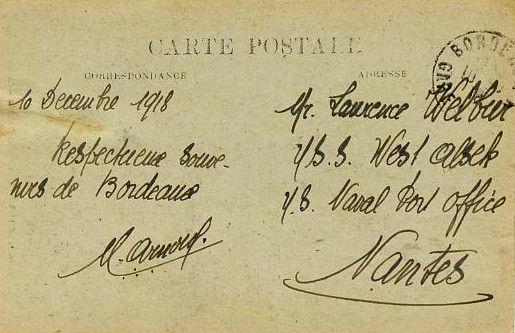 CARTE POSTALE
CORRESPONDANCE
10 Decembre 1918
Respectueux Souve-
nirs de Bordeaux
M. Arnold.
ADRESSE
Mr. Laurence
U.S.S. West Alsek
U.S. Naval Post Office
Nantes
BORDEAUX
GARE